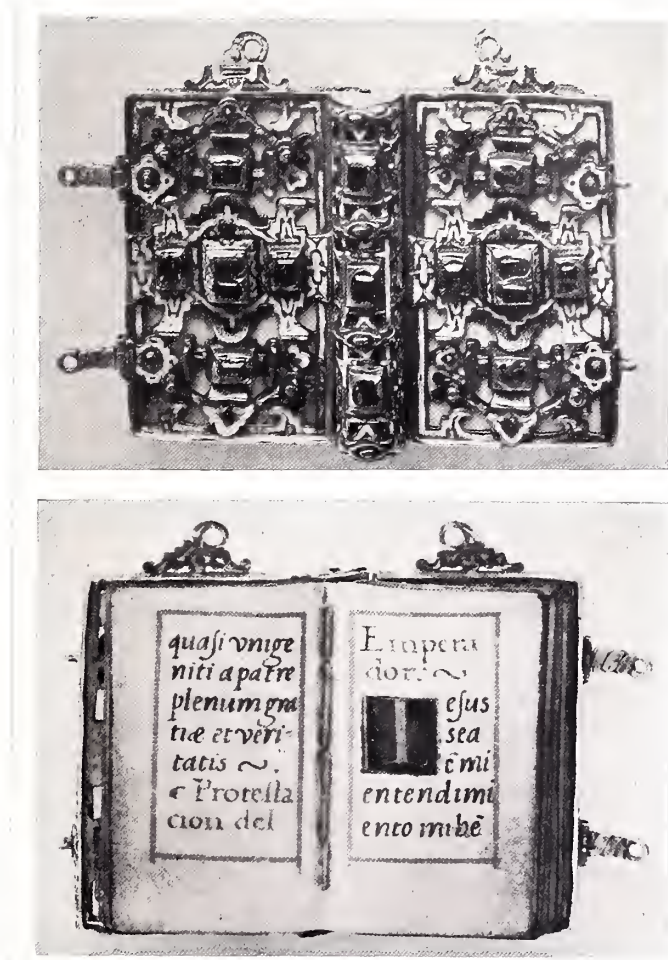 quasi vnige
niti a patre
plenum gra
tiæ et veri-
tatis ~.
Protesta
cion del
Empera
dor. ~
Iesus
sea
ẽ mi
entendimi
ento mi bẽ